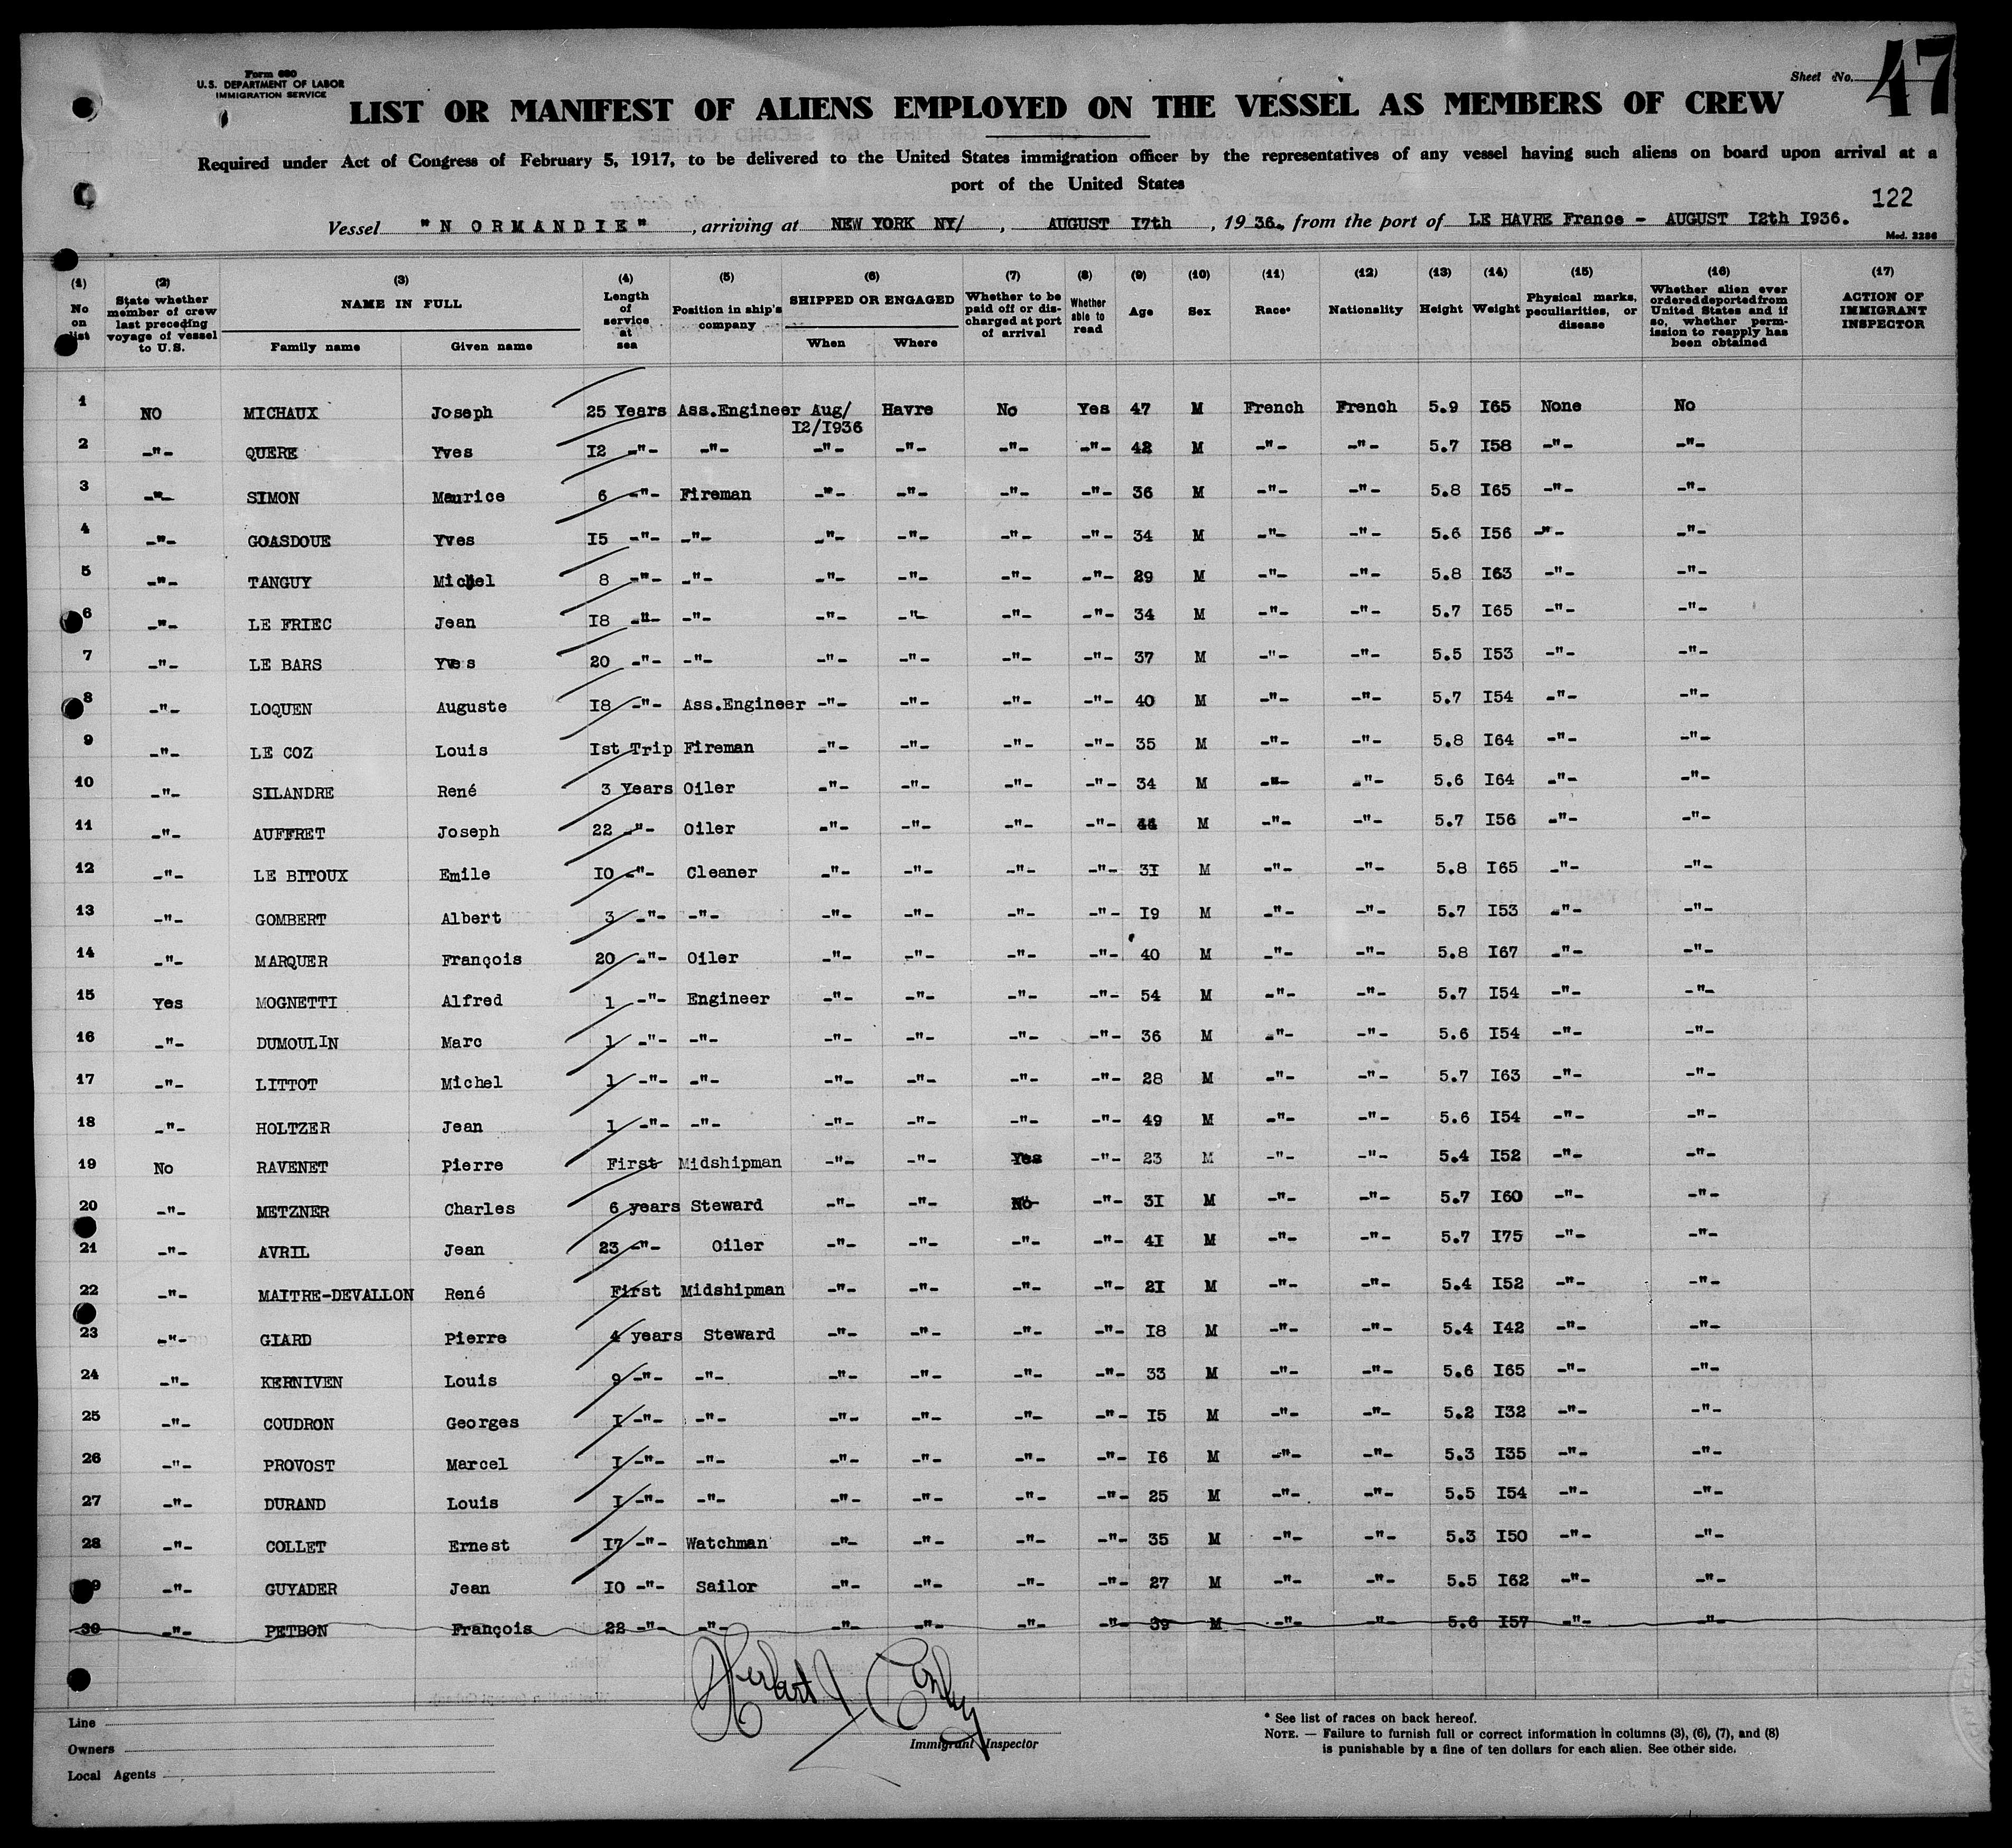 Form 680
U.S. DEPARTMENT OF LABOR
IMMIGRATION SERVICE
Sheet No. 47
LIST OR MANIFEST OF ALIENS EMPLOYED ON THE VESSEL AS MEMBERS OF CREW
Required under Act of Congress of February 5, 1917, to be delivered to the United States immigration officer by the representatives of any vessel having such aliens on board upon arrival at a
port of the United States
122
Vessel "N ORMANDIE", arriving at NEW YORK NY/, AUGUST I7th, 1936, from the port of LE HAVRE France - AUGUST I2th I936.
Mod. 2286
(1) No on list (2) State whether member of crew last preceding voyage of vessel to U.S. (3) NAME IN FULL Family name Given name (4) Length of service at sea (5) Position in ship's company (6) SHIPPED OR ENGAGED When Where (7) Whether to be paid off or discharged at port of arrival (8) Whether able to read (9) Age (10) Sex (11) Race* (12) Nationality (13) Height (14) Weight (15) Physical marks, peculiarities, or disease (16) Whether alien ever ordered deported from United States and if so, whether permission to reapply has been obtained (17) ACTION OF IMMIGRANT INSPECTOR
1 NO MICHAUX Joseph 25 Years Ass.Engineer Aug/ I2/I936 Havre No Yes 47 M French French 5.9 I65 None No
2 -"- QUERE Yves I2 -"- -"- -"- -"- -"- -"- 42 M -"- -"- 5.7 I58 -"- -"-
3 -"- SIMON Maurice 6 -"- Fireman -"- -"- -"- -"- 36 M -"- -"- 5.8 I65 -"- -"-
4 -"- GOASDOUE Yves I5 -"- -"- -"- -"- -"- -"- 34 M -"- -"- 5.6 I56 -"- -"-
5 -"- TANGUY Michel 8 -"- -"- -"- -"- -"- -"- 29 M -"- -"- 5.8 I63 -"- -"-
6 -"- LE FRIEC Jean I8 -"- -"- -"- -"- -"- -"- 34 M -"- -"- 5.7 I65 -"- -"-
7 -"- LE BARS Yves 20 -"- -"- -"- -"- -"- -"- 37 M -"- -"- 5.5 I53 -"- -"-
8 -"- LOQUEN Auguste I8 -"- Ass.Engineer -"- -"- -"- -"- 40 M -"- -"- 5.7 I54 -"- -"-
9 -"- LE COZ Louis Ist Trip Fireman -"- -"- -"- -"- 35 M -"- -"- 5.8 I64 -"- -"-
10 -"- SILANDRE René 3 Years Oiler -"- -"- -"- -"- 34 M -"- -"- 5.6 I64 -"- -"-
11 -"- AUFFRET Joseph 22 -"- Oiler -"- -"- -"- -"- 44 M -"- -"- 5.7 I56 -"- -"-
12 -"- LE BITOUX Emile I0 -"- Cleaner -"- -"- -"- -"- 3I M -"- -"- 5.8 I65 -"- -"-
13 -"- GOMBERT Albert 3 -"- -"- -"- -"- -"- -"- I9 M -"- -"- 5.7 I53 -"- -"-
14 -"- MARQUER François 20 -"- Oiler -"- -"- -"- -"- 40 M -"- -"- 5.8 I67 -"- -"-
15 Yes MOGNETTI Alfred 1 -"- Engineer -"- -"- -"- -"- 54 M -"- -"- 5.7 I54 -"- -"-
16 -"- DUMOULIN Marc 1 -"- -"- -"- -"- -"- -"- 36 M -"- -"- 5.6 I54 -"- -"-
17 -"- LITTOT Michel 1 -"- -"- -"- -"- -"- -"- 28 M -"- -"- 5.7 I63 -"- -"-
18 -"- HOLTZER Jean 1 -"- -"- -"- -"- -"- -"- 49 M -"- -"- 5.6 I54 -"- -"-
19 No RAVENET Pierre First Midshipman -"- -"- Yes -"- 23 M -"- -"- 5.4 I52 -"- -"-
20 -"- METZNER Charles 6 years Steward -"- -"- No -"- 3I M -"- -"- 5.7 I60 -"- -"-
21 -"- AVRIL Jean 23 -"- Oiler -"- -"- -"- -"- 4I M -"- -"- 5.7 I75 -"- -"-
22 -"- MAITRE-DEVALLON René First Midshipman -"- -"- -"- -"- 2I M -"- -"- 5.4 I52 -"- -"-
23 -"- GIARD Pierre 4 years Steward -"- -"- -"- -"- I8 M -"- -"- 5.4 I42 -"- -"-
24 -"- KERNIVEN Louis 9 -"- -"- -"- -"- -"- -"- 33 M -"- -"- 5.6 I65 -"- -"-
25 -"- COUDRON Georges I -"- -"- -"- -"- -"- -"- I5 M -"- -"- 5.2 I32 -"- -"-
26 -"- PROVOST Marcel I -"- -"- -"- -"- -"- -"- I6 M -"- -"- 5.3 I35 -"- -"-
27 -"- DURAND Louis I -"- -"- -"- -"- -"- -"- 25 M -"- -"- 5.5 I54 -"- -"-
28 -"- COLLET Ernest I7 -"- Watchman -"- -"- -"- -"- 35 M -"- -"- 5.3 I50 -"- -"-
9 -"- GUYADER Jean I0 -"- Sailor -"- -"- -"- -"- 27 M -"- -"- 5.5 I62 -"- -"-
30 -"- PETBON François 22 -"- -"- -"- -"- -"- -"- 39 M -"- -"- 5.6 I57 -"- -"-
Immigrant Inspector
Line
Owners
Local Agents
* See list of races on back hereof.
NOTE. — Failure to furnish full or correct information in columns (3), (6), (7), and (8)
is punishable by a fine of ten dollars for each alien. See other side.